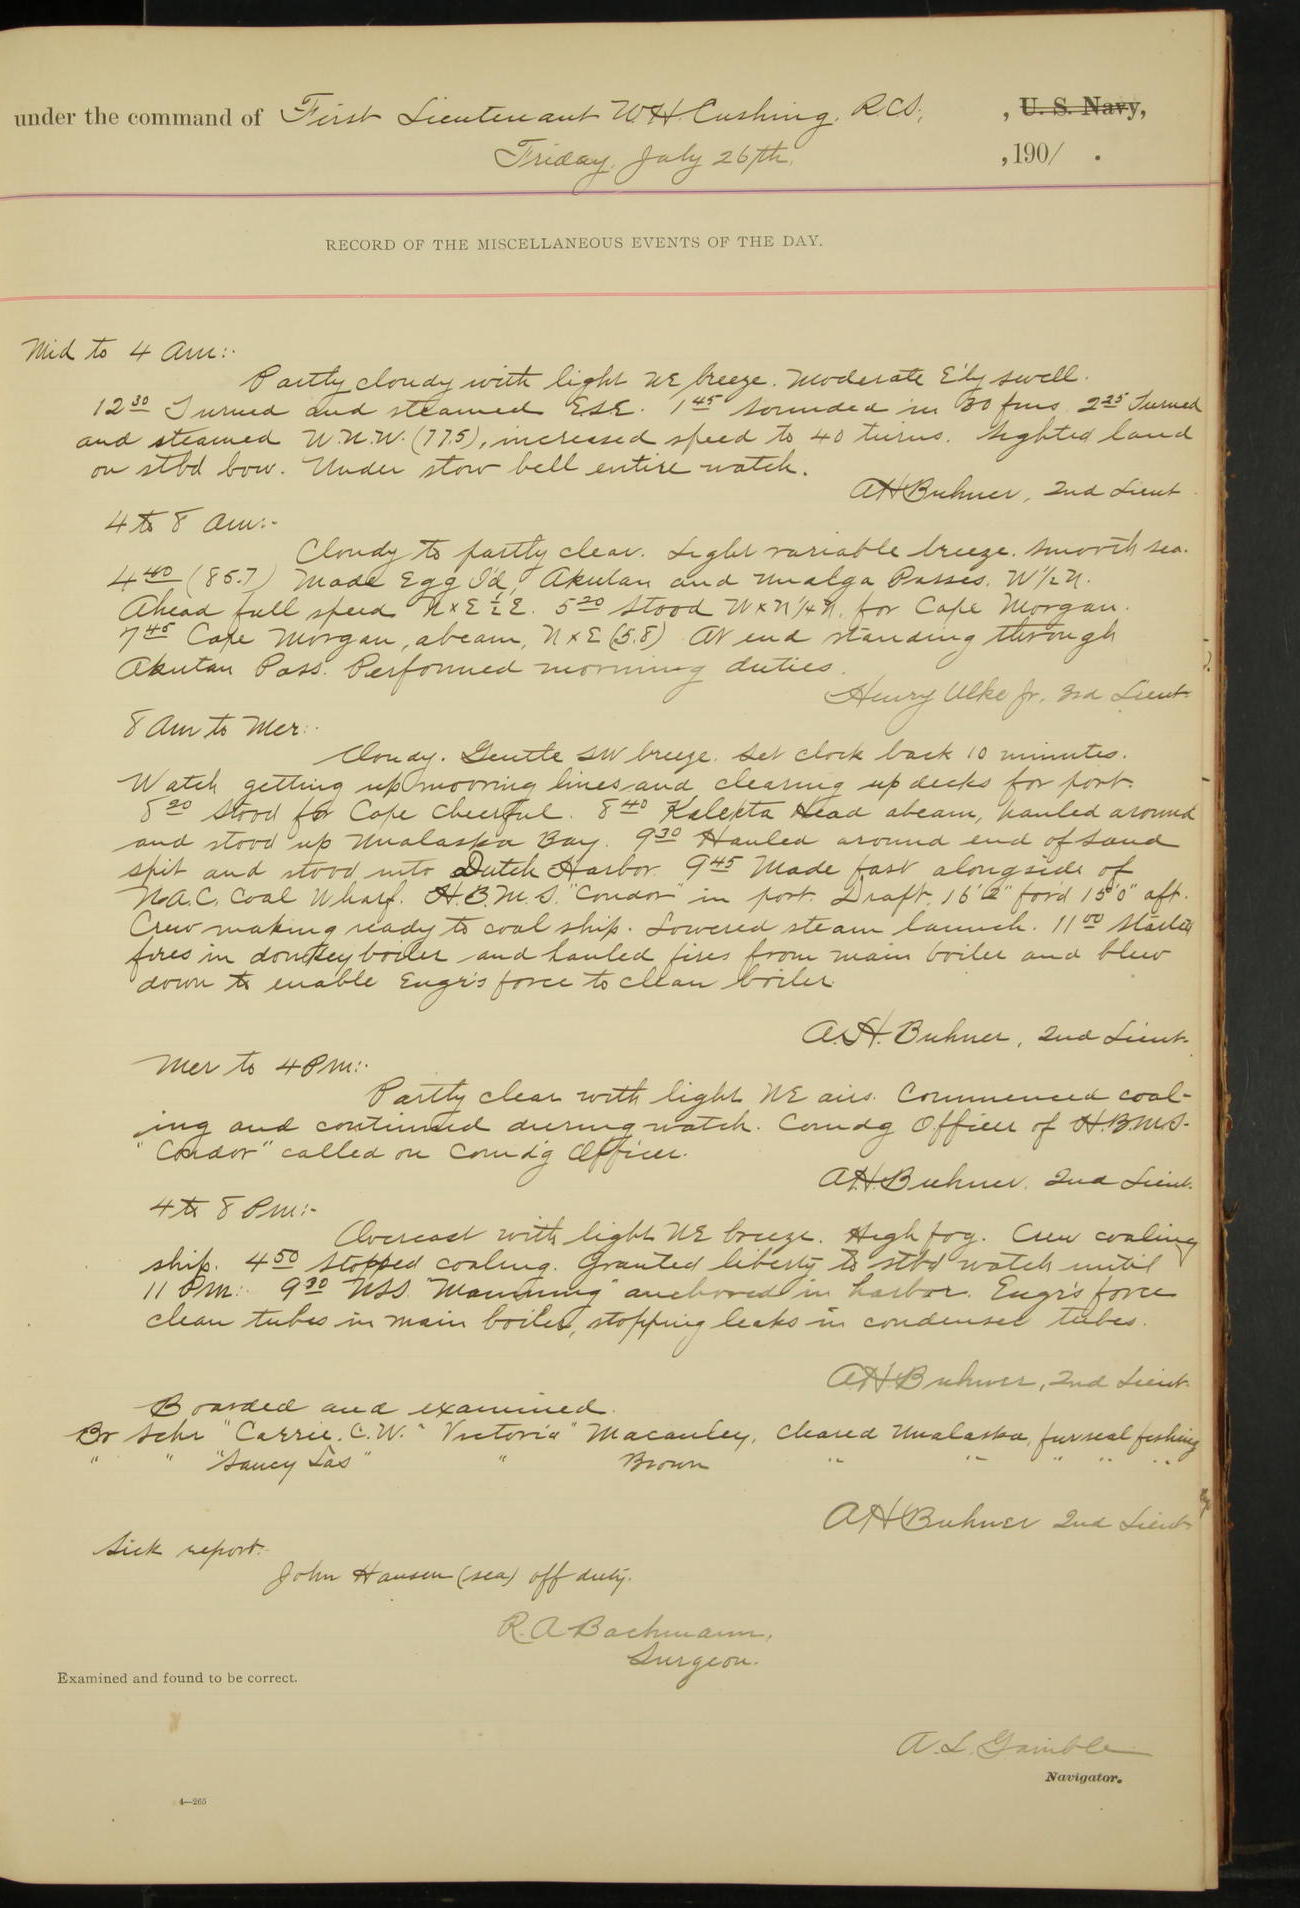 under the command of First Lieutenant W.H. Cushing, R.C.S., , U. S. Navy,
Friday, July 26th, , 1901 .
RECORD OF THE MISCELLANEOUS EVENTS OF THE DAY.
Mid to 4 Am:-
Partly cloudy with light NE breeze. Moderate E'ly swell.
12 30 Turned and steamed ESE. 1 45 Sounded in 30 fms 2 25 Turned
and steamed W.N.W. (77.5), increased speed to 40 turns. Sighted land
on stbd bow. Under slow bell entire watch.
A H Buhner, 2nd Lieut.
4 to 8 Am:-
Cloudy to partly clear. Light variable breeze. Smooth sea.
4 40 (85.7) Made Egg I'd, Akutan and Unalga Passes, W 1/2 N.
Ahead full speed N x E 1/2 E. 5 20 Stood W x N 1/4 N. for Cape Morgan.
7 45 Cape Morgan, abeam, N x E (5.8) At end standing through
Akutan Pass. Performed morning duties.
Henry Ulke Jr. 3rd Lieut.
8 Am to Mer:-
Cloudy. Gentle SW breeze. Set clock back 10 minutes.
Watch getting up mooring lines and clearing up decks for port.
8 20 Stood for Cape Cheerful. 8 40 Kalekta Head abeam, hauled around
and stood up Unalaska Bay. 9 30 Hauled around end of sand
spit and stood into Dutch Harbor. 9 45 Made fast alongside of
N.A.C. Coal Wharf. H.B.M.S. "Condor" in port. Draft, 15' 2" for'd 15' 0" aft.
Crew making ready to coal ship. Lowered steam launch. 11 00 Started
fires in donkey boiler and hauled fires from main boiler and blew
down to enable Engr's force to clean boiler.
A.H. Buhner, 2nd Lieut.
Mer to 4 Pm:-
Partly clear with light NE airs. Commenced coal-
ing and continued during watch. Comdg Officer of H.B.M.S.
"Condor" called on Com'd'g Officer.
A.H. Buhner. 2nd Lieut.
4 to 8 Pm:-
Overcast with light NE breeze. High fog. Crew coaling
ship. 4 50 Stopped coaling. Granted liberty to stbd watch until
11 Pm: 9 30 USS. "Manning" anchored in harbor. Engr's force
clean tubes in main boiler, stopping leaks in condenser tubes.
A H Buhner, 2nd Lieut.
Boarded and examined.
Br Schr "Carrie. C.W." Victoria" Macauley, Cleared Unalaska, fur seal fishing
" " "Saucy Las" " Brown " " " " "
A H Buhner 2nd Lieut
Sick report.
John Hansen (sea) off duty.
R. A Bachmann,
Surgeon.
Examined and found to be correct.
A. L. Gamble
Navigator.
4—265